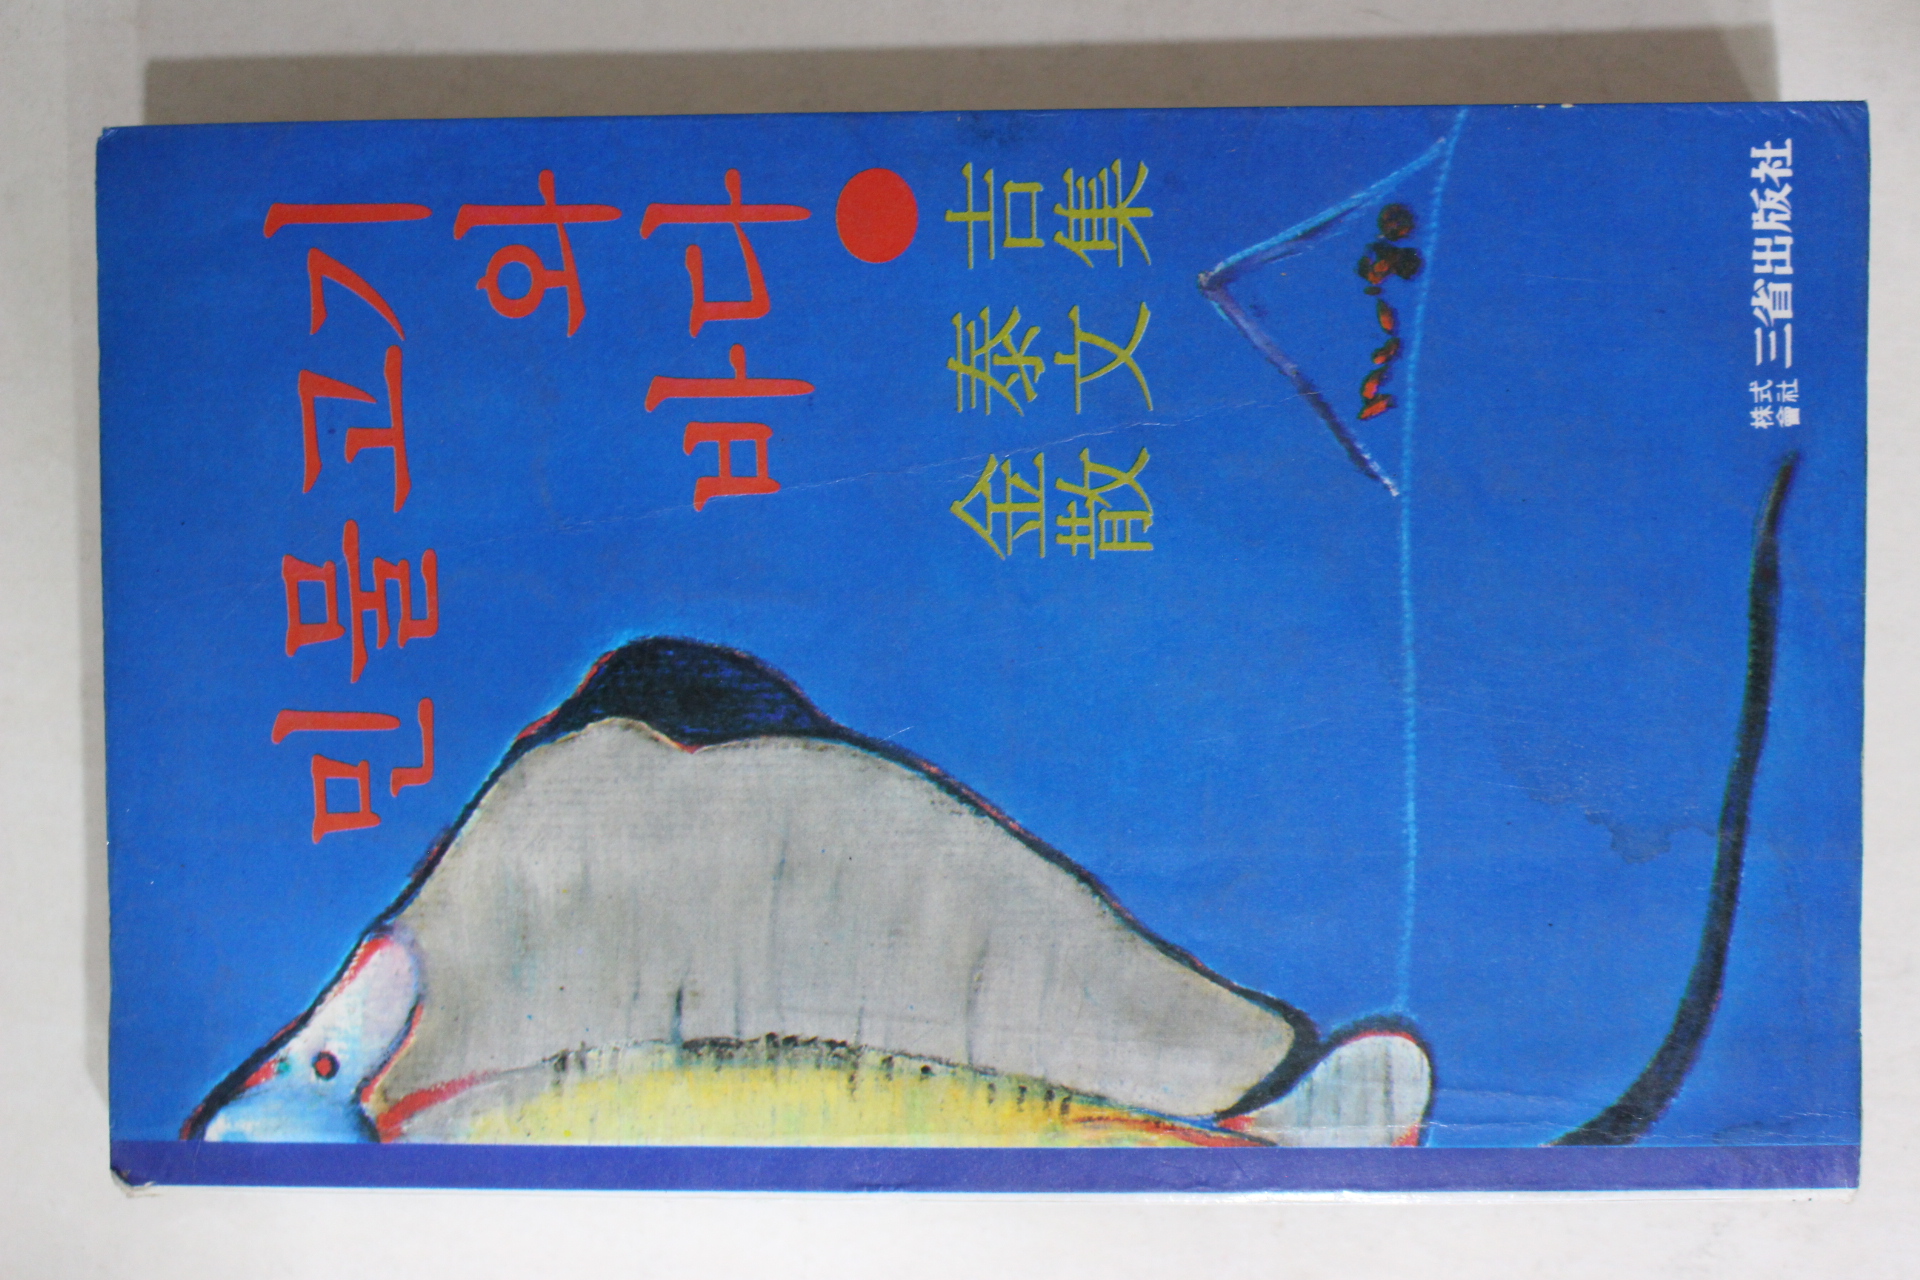 민물고기
와
바다
金泰吉
散文集
株式
會社
三省出版社